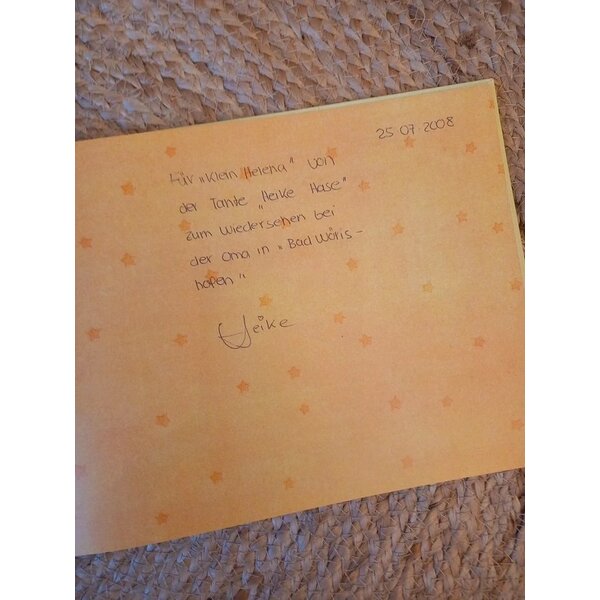 25 07. 2008
Für "Klein Helena" von
der Tante "Heike Hase"
zum Wiedersehen bei
der Oma in "Bad Wöris-
hofen"
Heike